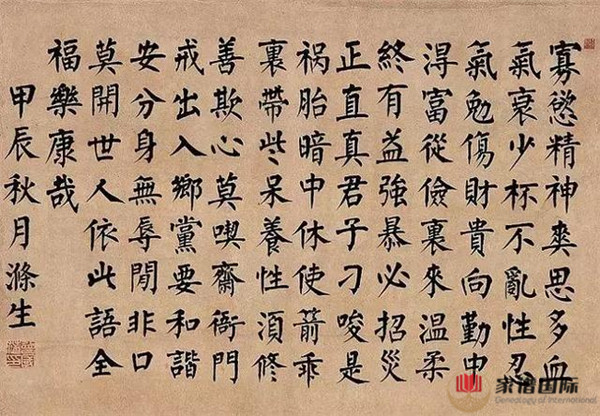 寡慾精神爽思多血
氣衰少杯不亂性忍
氣勉傷財貴向勤中
淂富從儉裏來温柔
終有益強暴必招災
正直真君子刁唆是
祸胎暗中休使箭乖
裏帶些呆養性湏修
善欺心莫喫齋衙門
戒出入鄉黨要和諧
安分身無辱閒非口
莫開世人依此語全
福樂康哉
甲辰秋月滌生
家谱国际
Genealogy of International